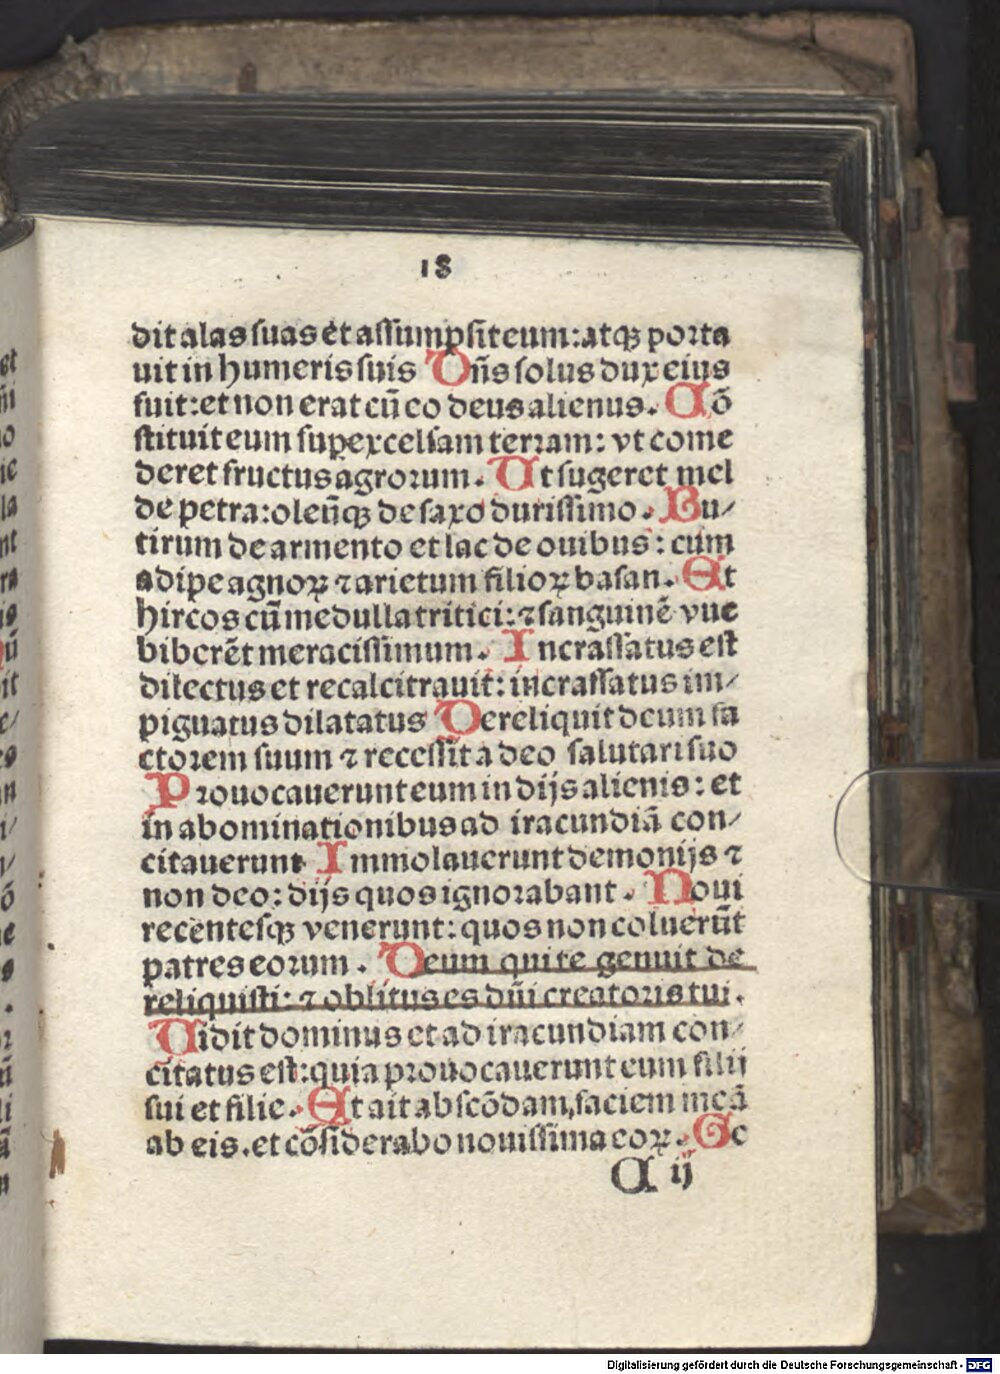 18
dit alas suas et assumpsit eum: atqꝫ porta
uit in humeris suis Dñs solus dux eius
fuit: et non erat cū eo deus alienus. Cō
stituit eum suꝑ excelsam terram: vt come
deret fructus agrorum. Ut sugeret mel
de petra: oleūqꝫ de saxo durissimo. Bu/
tirum de armento et lac de ouibus: cum
adipe agnoꝝ ⁊ arietum filioꝝ basan. Et
hircos cū medulla tritici: ⁊ sanguinē vue
biberēt meracissimum. Incrassatus est
dilectus et recalcitrauit: incrassatus im/
piguatus dilatatus Dereliquit deum fa
ctorem suum ⁊ recessit a deo salutari suo
Prouocauerunt eum in dijs alienis: et
in abominationibus ad iracundiā con/
citauerunt Immolauerunt demonijs ⁊
non deo: dijs quos ignorabant. Noui
recentesqꝫ venerunt: quos non coluerūt
patres eorum. Deum qui te genuit de
reliquisti: ⁊ oblitus es dñi creatoris tui.
Uidit dominus et ad iracundiam con/
citatus est: quia prouocauerunt eum filij
sui et filie. Et ait abscōdam faciem meā
ab eis. et cōsiderabo nouissima eoꝝ. Ge
C ij
Digitalisierung gefördert durch die Deutsche Forschungsgemeinschaft - DFG